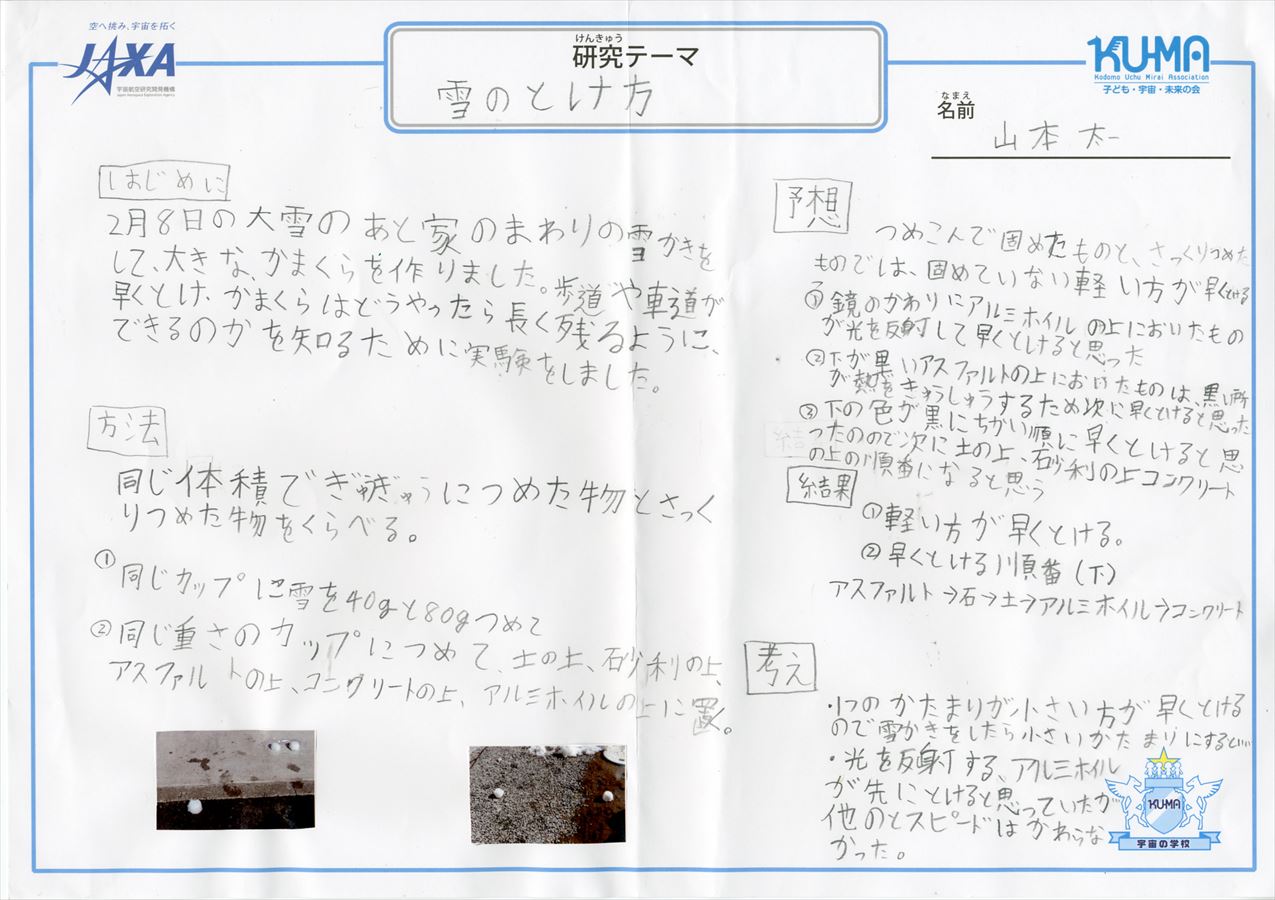 空へ挑み、宇宙を拓く
JAXA
宇宙航空研究開発機構
Japan Aerospace Exploration Agency
けんきゅう
研究テーマ
雪のとけ方
KU-MA
Kodomo Uchu Mirai Association
子ども・宇宙・未来の会
なまえ
名前
山本 太一
はじめに
2月8日の大雪のあと家のまわりの雪かきを
して、大きな、かまくらを作りました。歩道や車道が
早くとけ、かまくらはどうやったら長く残るように、
できるのかを知るために実験を
をしました。
方法
同じ体積でぎゅぎゅうにつめた物とさっく
りつめた物をくらべる。
① 同じカップに雪を40gと80gつめて
② 同じ重さのカップにつめて、土の土、砂利の上、
アスファルトの上、コンクリートの上、アルミホイルの上に置く。
予想
つめこんで固めたものと、さっくりつめた
ものでは、固めていない軽い方が早くとける
① 鏡のかわりにアルミホイルの上においたもの
が光を反射して早くとけると思った
② 下が黒いアスファルトの上におけたものは、黒い所
が熱をきゅうしゅうするため次に早くとけると思った
③ 下の色が黒にちかい順に早くとけると思
ったののので次に土の上、砂利の上コンクリート
の上の順番になると思う
結果
①軽い方が早くとける。
②早くとける順番(下)
アスファルト→石→土→アルミホイル→コンクリート
考え
・1つのかたまりが小さい方が早くとける
ので雪かきをしたら小さいかたまりにするといい
・光を反射する、アルミホイル
が先にとけると思っていたが
他のとスピードはかわらな
かった。
KU-MA
宇宙の学校